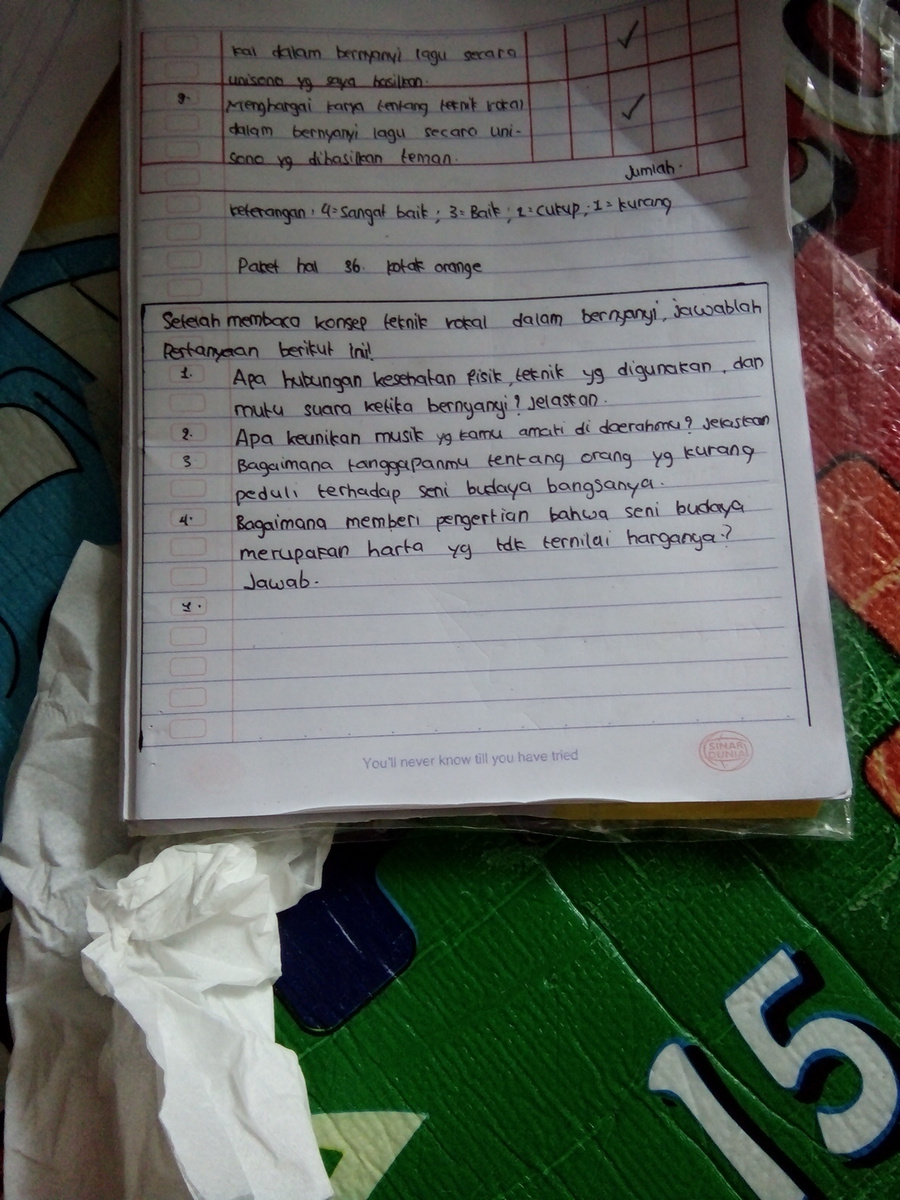 kal dalam bernyanyi lagu secara
unisono yg saya hasilkan.
9. Menghargai karya tentang teknik vokal
dalam bernyanyi lagu secara uni-
sono yg dihasilkan teman.
Jumlah.
keterangan: 4= Sangat baik; 3= Baik; 2= cukup; 1= kurang
Paket hal 36. kotak orange
Setelah membaca konsep teknik vokal dalam bernyanyi, jawablah
Pertanyaan berikut ini!
1. Apa hubungan kesehatan fisik, teknik yg digunakan, dan
mutu suara ketika bernyanyi? Jelaskan.
2. Apa keunikan musik yg kamu amati di daerahmu? Jelaskan
3 Bagaimana tanggapanmu tentang orang yg kurang
peduli terhadap seni budaya bangsanya.
4. Bagaimana memberi pengertian bahwa seni budaya
merupakan harta yg tdk ternilai harganya?
Jawab.
1.
You'll never know till you have tried
SINAR
DUNIA
15